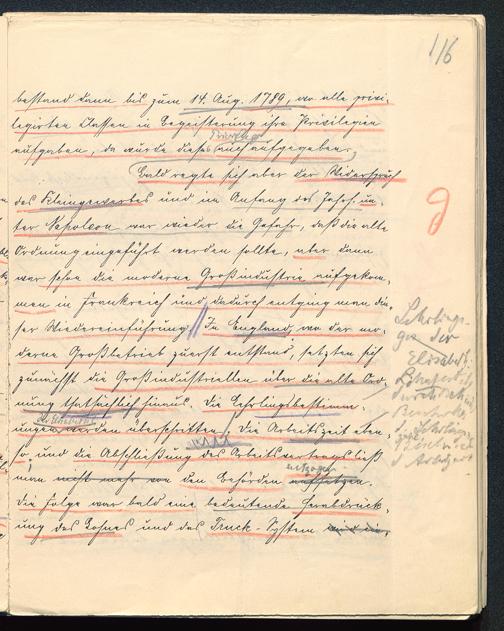 116
bestand dann bis zum 14. Aug. 1789, wo alle privi-
legirten Classen in Begeisterung ihre Privilegien
aufgaben, da wurde dieses auch aufgegeben.
Bald regte sich aber der Widerspruch
des Kleingewerbes und im Anfang des Jahrh. un-
ter Napoleon war wieder die Gefahr, daß die alte
Ordnung eingeführt werden sollte, aber dann
war schon die moderne Großindustrie aufgekom-
men in Frankreich und dadurch entging man die-
ser Wiedereinführung. In England, wo der mo-
derne Großbetrieb zuerst entstand, setzten sich
zunächst die Großindustriellen über die alte Ord-
nung thatsächlich hinaus. Die Lehrlingsbestimm-
ungen werden überschritten, die Arbeitszeit eben-
so, und die Abschließung des Arbeitsvertrags ließ
man nicht mehr von den Behörden aufsetzen.
Die Folge war bald eine bedeutende Herabdrück-
ung des Lohnes und das Truck-System wird im
Lehrlings-
ges. der
Elisabeth